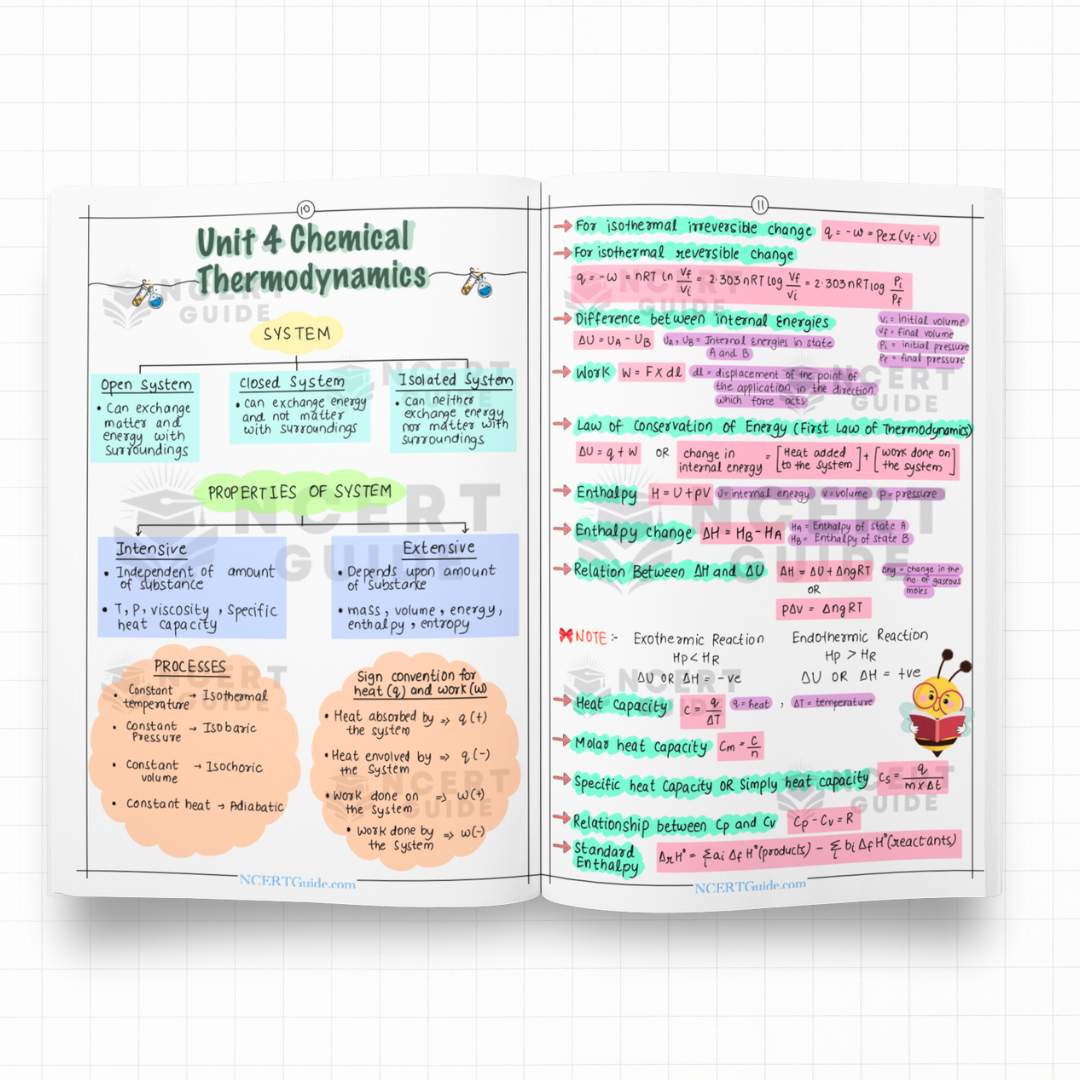 10
Unit 4 Chemical
Thermodynamics
SYSTEM
Open System
• Can exchange
matter and
energy with
surroundings
Closed System
• can exchange energy
and not matter
with surroundings
Isolated System
• Can neither
exchange energy
nor matter with
surroundings
PROPERTIES OF SYSTEM
Intensive
• Independent of amount
of substance
• T, P, viscosity, specific
heat capacity
Extensive
• Depends upon amount
of substance
• mass, volume, energy,
enthalpy, entropy
PROCESSES
• Constant temperature → Isothermal
• Constant Pressure → Isobaric
• Constant volume → Isochoric
• Constant heat → Adiabatic
Sign convention for
heat (q) and work (w)
• Heat absorbed by the system => q (+)
• Heat envolved by the System => q (-)
• Work done on the System => w(+)
• Work done by the System => w(-)
NCERTGuide.com
11
→ For isothermal irreversible change q = -w = Pex (Vf - Vi)
→ For isothermal reversible change
q = -w = nRT ln Vf/Vi = 2.303 nRT log Vf/Vi = 2.303 nRT log Pi/Pf
Vi = initial volume
Vf = final volume
Pi = initial pressure
Pf = final pressure
→ Difference between internal Energies
ΔU = UA - UB UA, UB = Internal Energies in state
A and B
→ Work W = F X dl dl = displacement of the point of
the application in the direction
which force acts
→ Law of Conservation of Energy (First Law of Thermodynamics)
ΔU = q + W OR change in internal energy = [Heat added to the system] + [work done on the system]
→ Enthalpy H = U + PV U = internal energy V = volume P = pressure
→ Enthalpy change ΔH = HB - HA HA = Enthalpy of state A
HB = Enthalpy of state B
→ Relation Between ΔH and ΔU ΔH = ΔU + ΔngRT Δng = change in the
no. of gaseous
moles
OR
PΔV = ΔngRT
NOTE :- Exothermic Reaction Endothermic Reaction
HP < HR HP > HR
ΔU OR ΔH = -ve ΔU OR ΔH = +ve
→ Heat Capacity C = q/ΔT q = heat , ΔT = temperature
→ Molar heat capacity Cm = C/n
→ Specific heat Capacity OR Simply heat capacity Cs = q/m X Δt
→ Relationship between Cp and Cv Cp - Cv = R
→ Standard
Enthalpy ΔrH° = Σ ai Δf H° (products) - Σ bi Δf H° (reactants)
NCERTGuide.com
NCERT
GUIDE